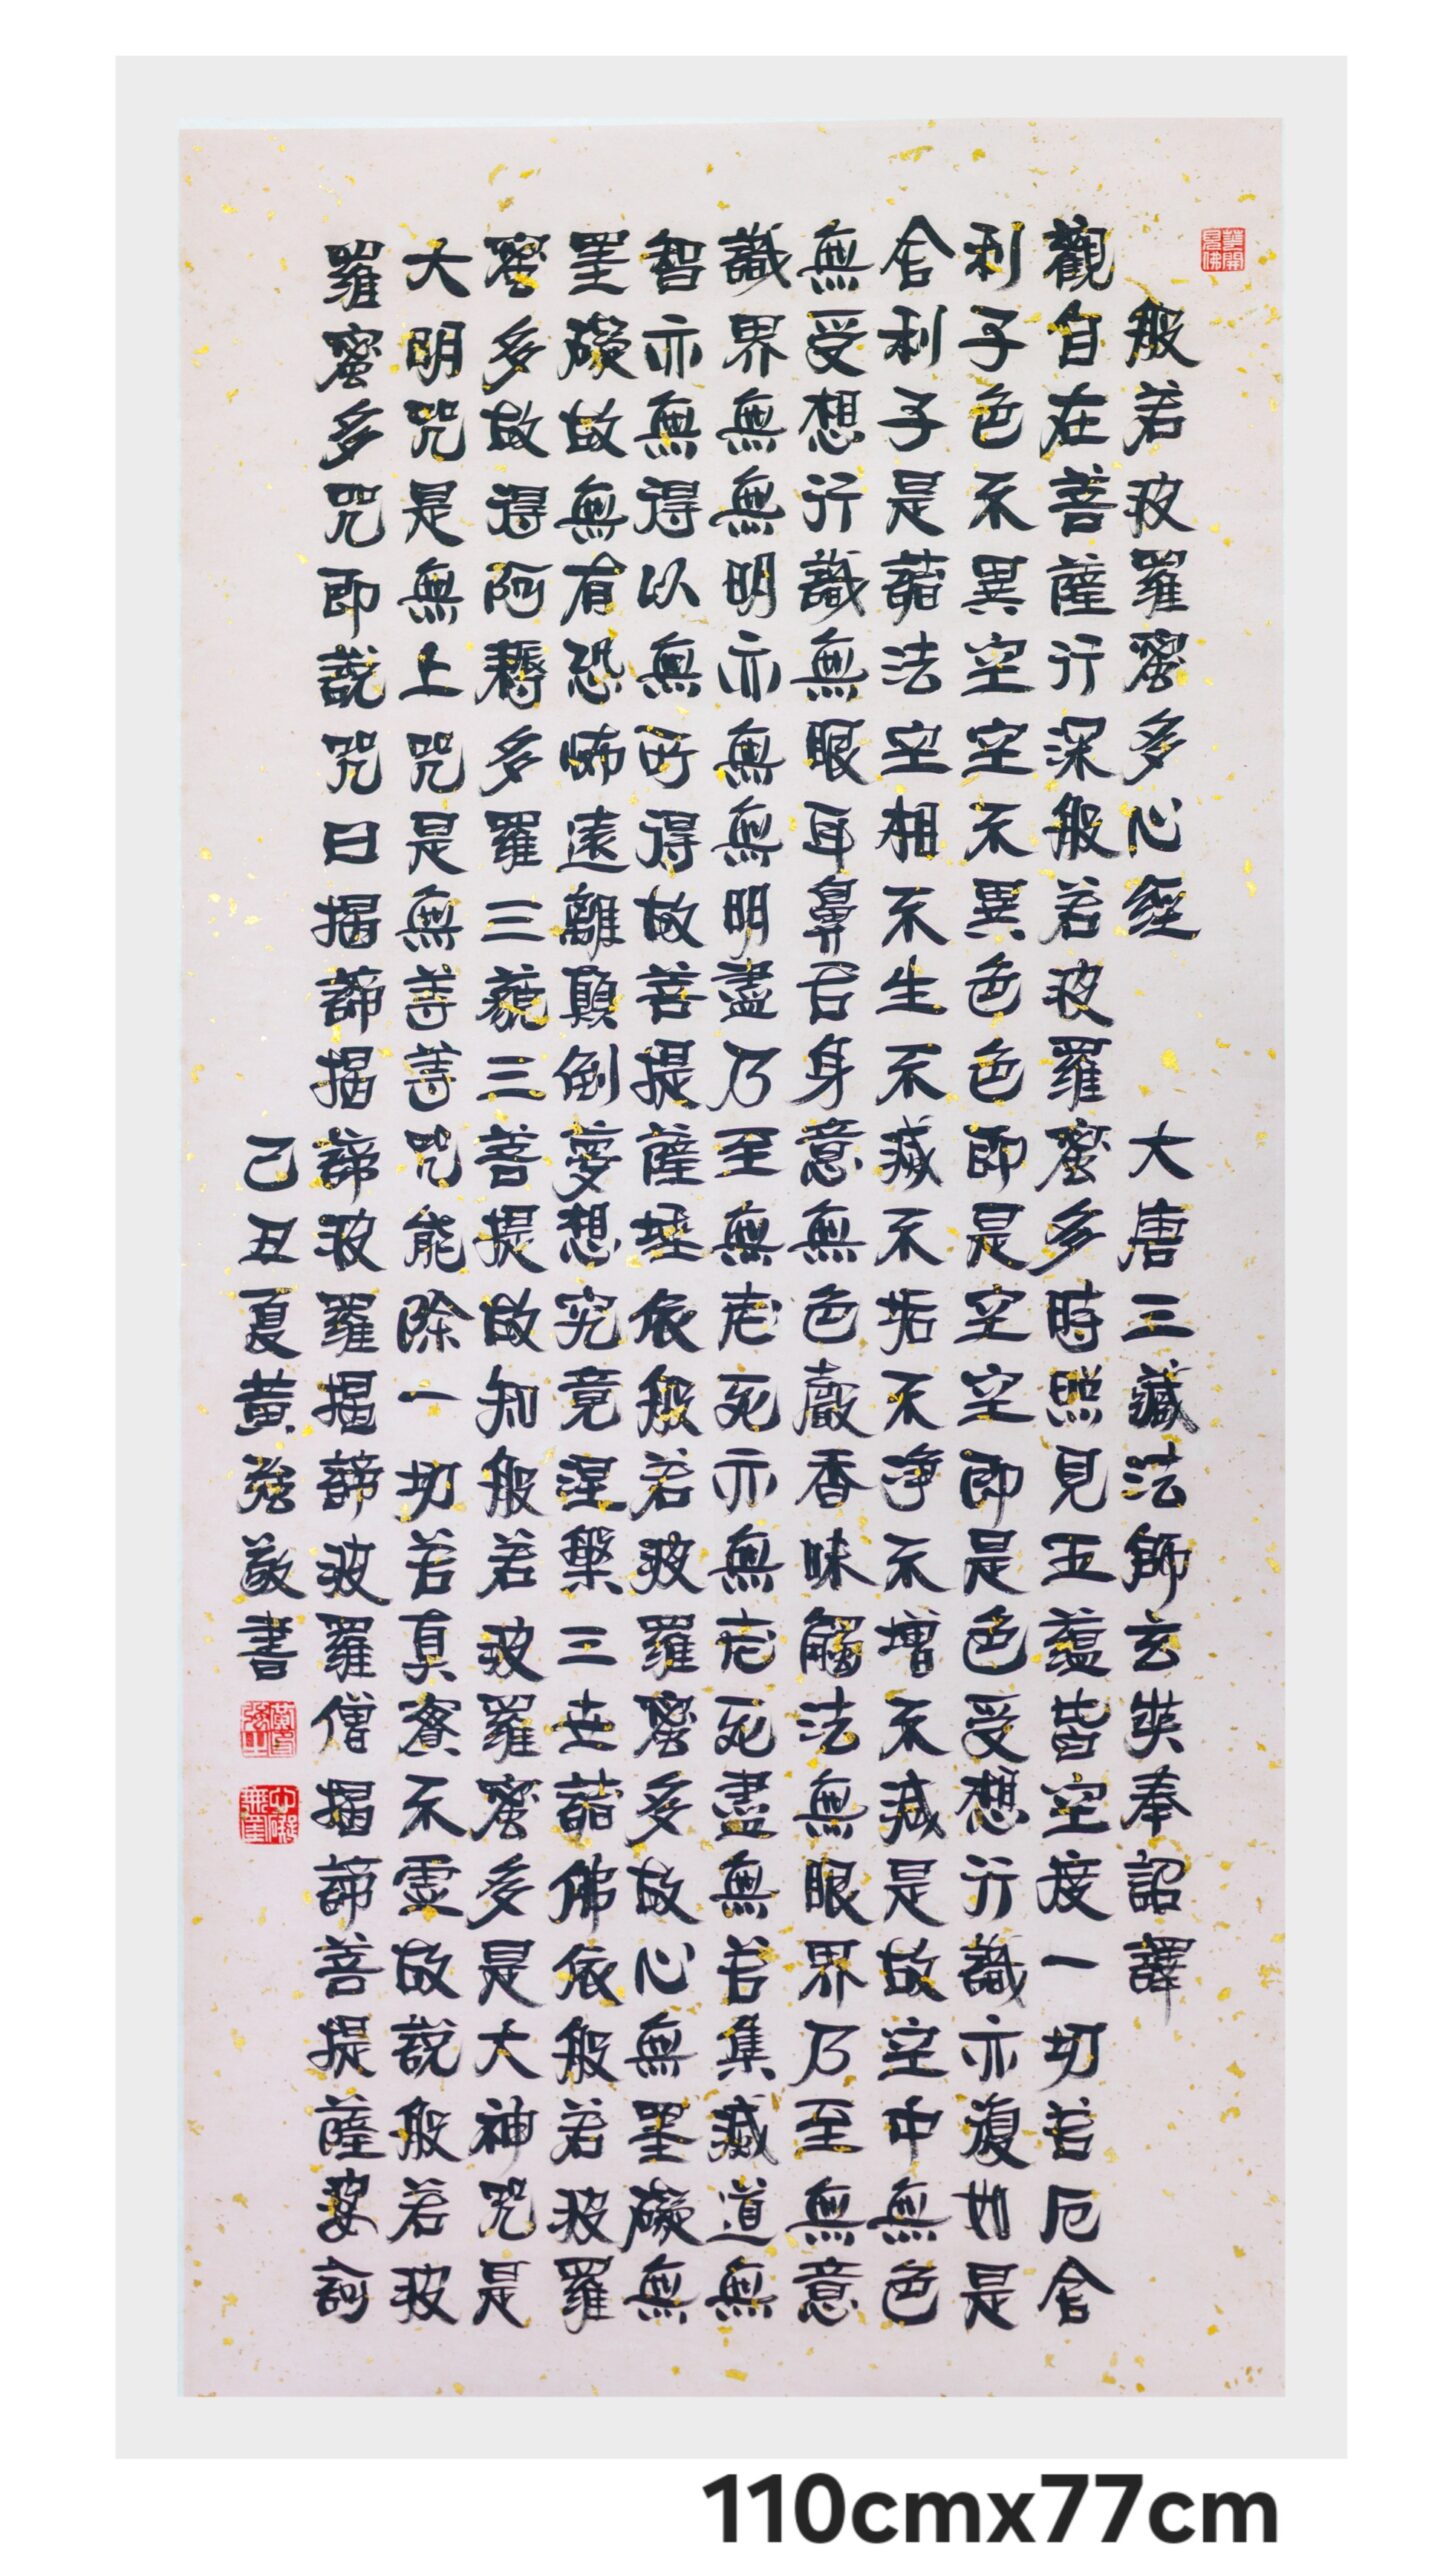 華開見佛
般若波羅蜜多心經 大唐三藏法師玄奘奉詔譯
觀自在菩薩行深般若波羅蜜多時照見五蘊皆空度一切苦厄舍
利子色不異空空不異色色即是空空即是色受想行識亦復如是
舍利子是諸法空相不生不滅不垢不淨不增不減是故空中無色
無受想行識無眼耳鼻舌身意無色聲香味觸法無眼界乃至無意
識界無無明亦無無明盡乃至無老死亦無老死盡無苦集滅道無
智亦無得以無所得故菩提薩埵依般若波羅蜜多故心無罣礙無
罣礙故無有恐怖遠離顛倒夢想究竟涅槃三世諸佛依般若波羅
蜜多故得阿耨多羅三藐三菩提故知般若波羅蜜多是大神咒是
大明咒是無上咒是無等等咒能除一切苦真實不虛故說般若波
羅蜜多咒即說咒曰揭諦揭諦波羅揭諦波羅僧揭諦菩提薩婆訶
己丑夏黃強敬書
心無罣礙
110cmx77cm